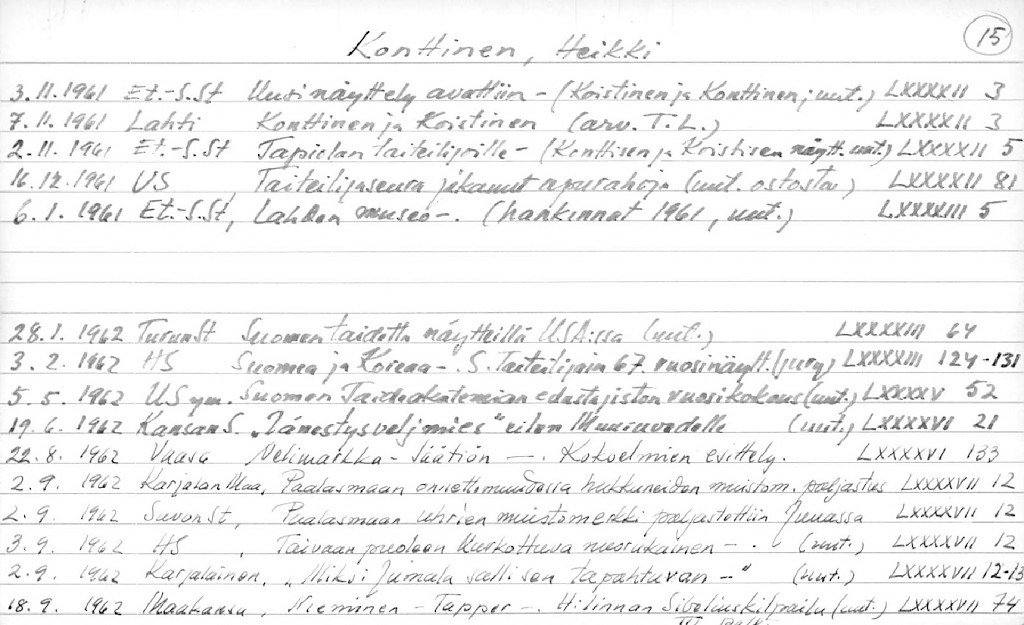 15
Konttinen, Heikki
3.11.1961 Et.-S.St Uusi näyttely avattiin - (Koistinen ja Konttinen; uut.) LXXXXII 3
7.11.1961 Lahti Konttinen ja Koistinen (arv. T.L.) LXXXXII 3
2.11.1961 Et.-S.St Tapiolan taiteilijoille - (Konttisen ja Koistisen näytt. uut) LXXXXII 5
16.12.1961 US , Taiteilijaseura jakanut apurahoja (uut. ostosta) LXXXXII 81
6.1.1961 Et.-S.St, Lahden museo -. (hankinnat 1961, uut.) LXXXXIII 5
28.1.1962 TurunSt Suomen taidetta näytteillä USA:ssa (uut.) LXXXXIII 64
3.2.1962 HS Suomea ja Koreaa -. S. Taiteilijain 67. vuosinäytt. (jury) LXXXXIII 124-131
5.5.1962 US ym. Suomen Taideakatemian edustajiston vuosikokous (uut.) LXXXXV 52
19.6.1962 KansanS. „Äänestysveljmies" eilen Muuruvedelle (uut.) LXXXXVI 21
22.8.1962 Vaasa Nelimarkka-Säätiön -. Kokoelmien esittely. LXXXXVI 133
2.9. 1962 Karjalan Maa, Paalasmaan onnettomuudessa hukkuneiden muistom. paljastus LXXXXVII 12
2.9. 1962 SavonSt, Paalasmaan uhrien muistomerkki paljastettiin Juuassa LXXXXVII 12
3.9. 1962 HS , Taivaan puoleen kurkottuva nuorukainen - . (uut.) LXXXXVII 12
2.9. 1962 Karjalainen, „Miksi Jumala salli sen tapahtuvan -" (uut.) LXXXXVII 12-13
18.9. 1962 Maakansa, Nieminen - Tapper -. H:linnan Sibeliuskilpailu (uut.) LXXXXVII 74
III